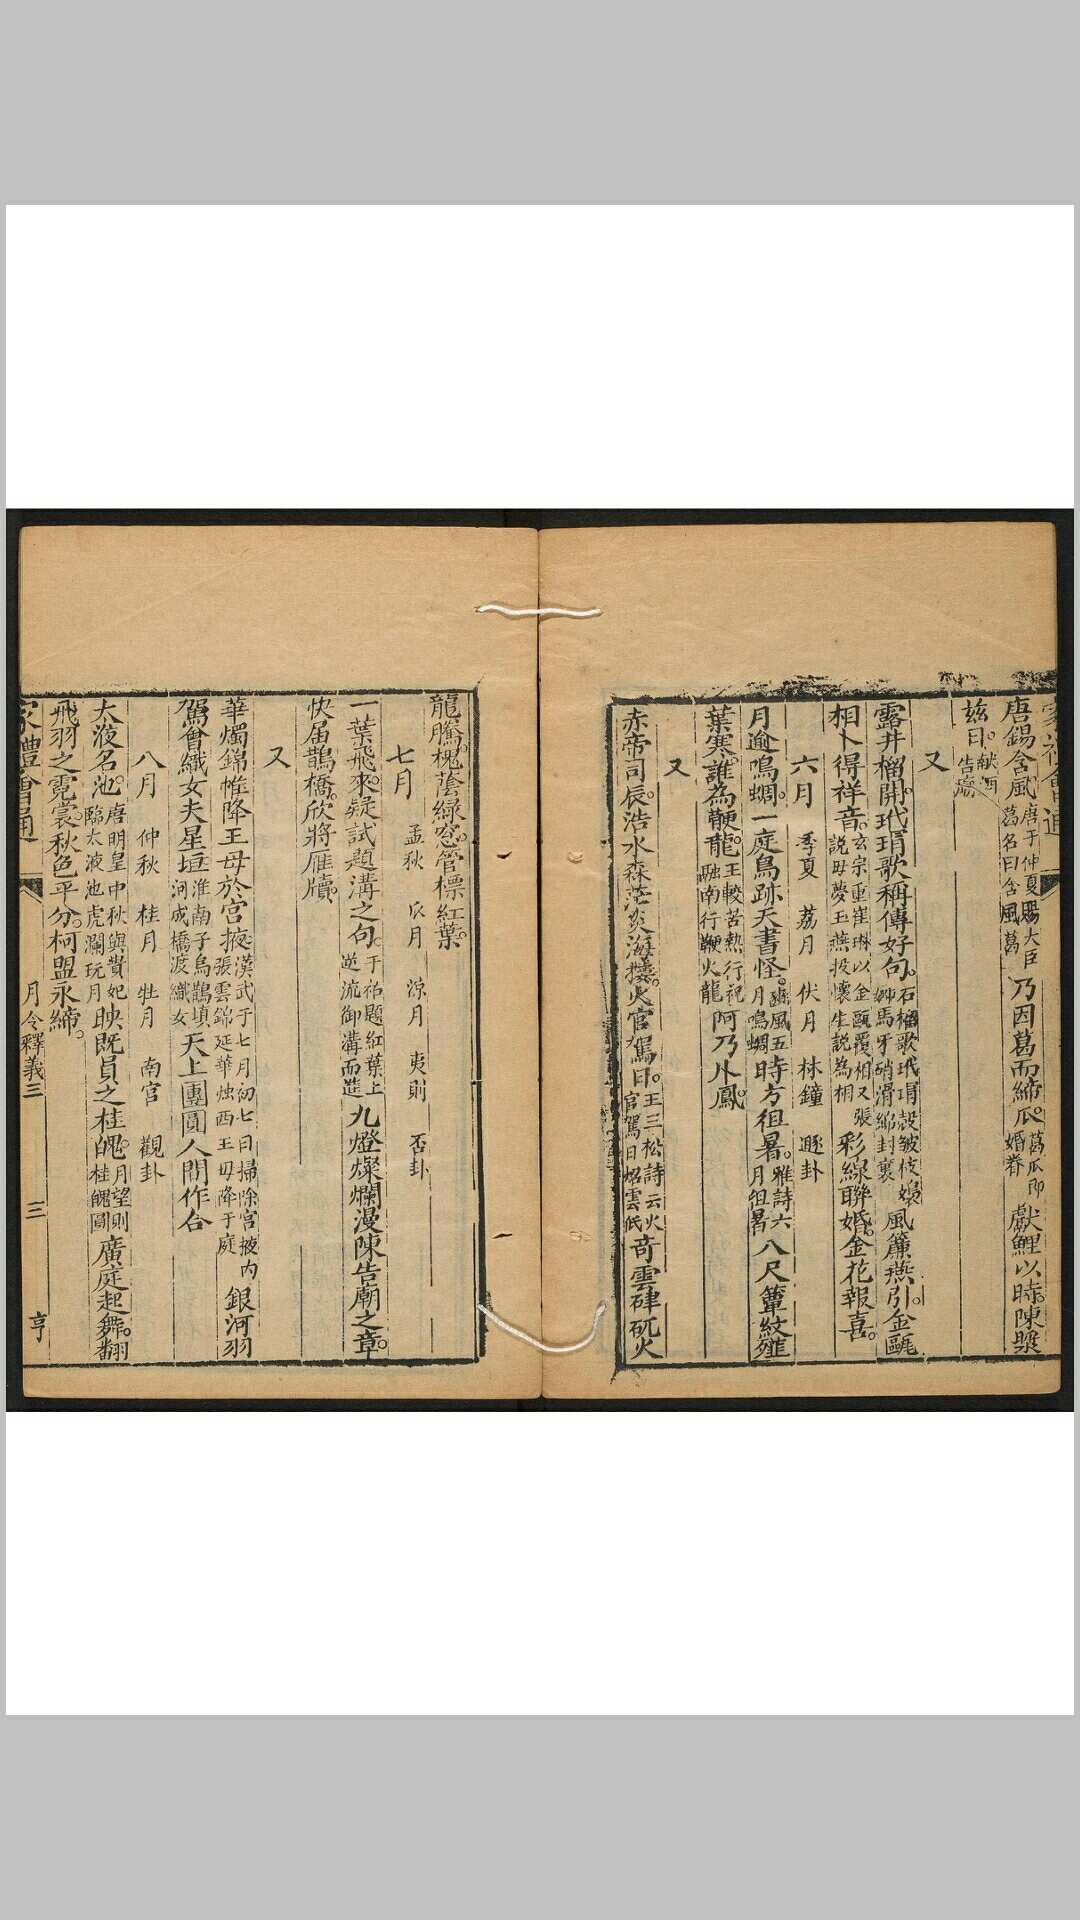 唐錫含風唐于仲夏賜大臣葛名曰含風葛乃因葛而締瓜葛瓜即婚眷獻鯉以時陳漿
茲日獻酒告廟
又
露井榴開玳瑁歌稱傳好句石榴歌玳瑁殼皺枝嬝姊馬牙硝滑綿封裹風簾燕引金甌
相卜得祥音玄宗重崔琳以金甌覆相又張說母夢玉燕投懷生說為相彩線聯婚金花報喜
六月 季夏 荔月 伏月 林鐘 遯卦
月逾鳴蜩一庭鳥跡天書怪豳風五月鳴蜩時方徂暑雅詩六月徂暑八尺簟紋蕹
葉寒誰為鞭龍王轂苦熱行祝融南行鞭火龍阿乃卜鳳
又
赤帝司辰浩水森茫炎海㩳火官駕日王三松詩云火官駕日炤雲低奇雲硉矹火
龍騰槐蔭綠窓管標紅葉
七月 孟秋 瓜月 涼月 夷則 否卦
一葉飛來疑試題溝之句于祐題紅葉上逆流御溝而進九燈燦爛漫陳告廟之章
快届鵲橋欣將雁牘
又
華燭錦帷降王母於宮掖漢武于七月初七日掃除宮掖內張雲錦延華燭西王母降于庭銀河羽
駕會織女夫星垣淮南子烏鵲填河成橋渡織女天上團圓人間作合
八月 仲秋 桂月 牡月 南宮 觀卦
太液名池唐明皇中秋與貴妃臨太液池虎瀾玩月映既員之桂魄月望則桂魄圓廣庭起舞翻
飛羽之霓裳秋色平分柯盟永締
家禮會通 月令釋義三 三 亨